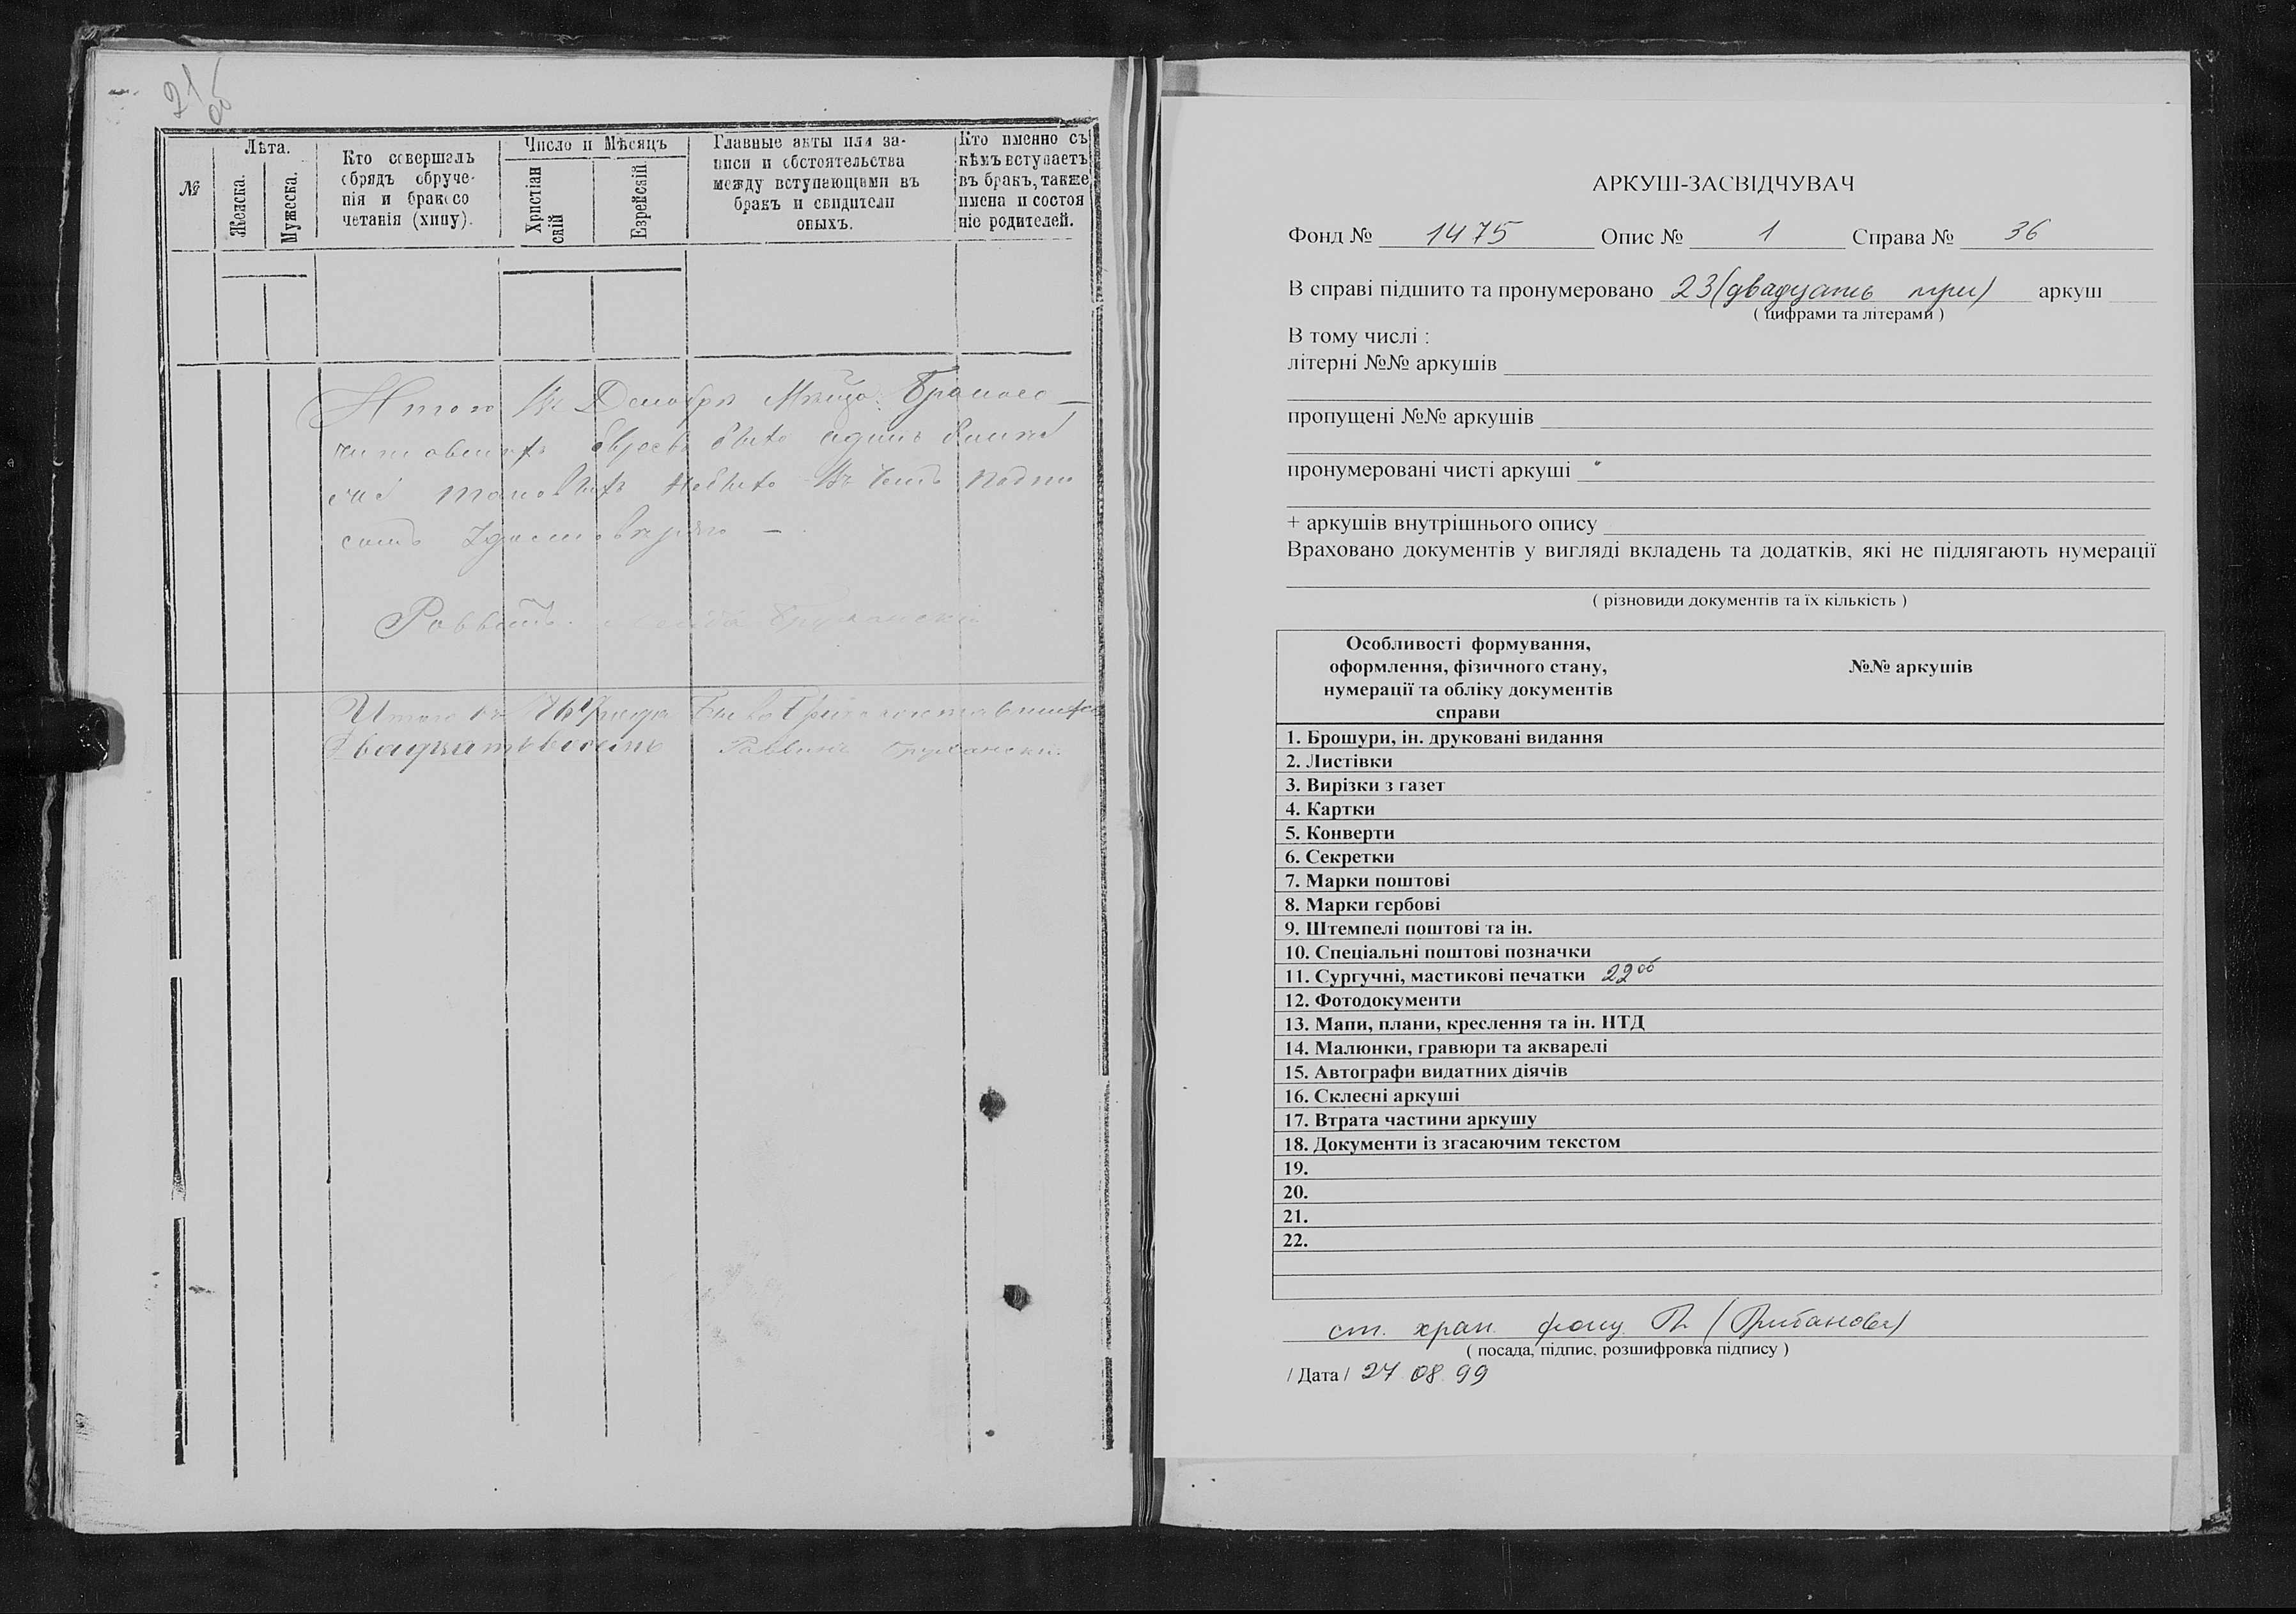 21 об
№
Лѣта.
Женска.
Мужеска.
Кто совершалъ
обрядъ обруче-
нія и бракосо
четанія (хипу).
Число и Мѣсяцъ
Христіан
скій
Еврейскій
Главные акты или за-
писи и обстоятельства
между вступающими въ
бракъ и свидители
оныхъ.
Кто именно съ
кѣмъ вступаетъ
въ бракъ, также
имена и состоя
ніе родителей.
Итого Въ Декабрѣ Мѣсяцѣ Бракосо—
четавшихъ
въ чемъ подпи
сомъ Удостовѣряю —
Раввинъ
Итого въ года Бракосочетавшихся
Двадцать восемь Раввинъ
АРКУШ-ЗАСВІДЧУВАЧ
Фонд № 1475 Опис № 1 Справа № 36
В справі підшито та пронумеровано 23 (двадцать три) аркуш
( цифрами та літерами )
В тому числі :
літерні №№ аркушів
пропущені №№ аркушів
пронумеровані чисті аркуші
+ аркушів внутрішнього опису
Враховано документів у вигляді вкладень та додатків, які не підлягають нумерації
( різновиди документів та їх кількість )
Особливості формування,
оформлення, фізичного стану,
нумерації та обліку документів
справи
№№ аркушів
1. Брошури, ін. друковані видання
2. Листівки
3. Вирізки з газет
4. Картки
5. Конверти
6. Секретки
7. Марки поштові
8. Марки гербові
9. Штемпелі поштові та ін.
10. Спеціальні поштові позначки
11. Сургучні, мастикові печатки 22 об
12. Фотодокументи
13. Мапи, плани, креслення та ін. НТД
14. Малюнки, гравюри та акварелі
15. Автографи видатних діячів
16. Склеєні аркуші
17. Втрата частини аркушу
18. Документи із згасаючим текстом
19.
20.
21.
22.
ст. хран. фонду
( посада, підпис, розшифровка підпису )
/ Дата / 27 08 99